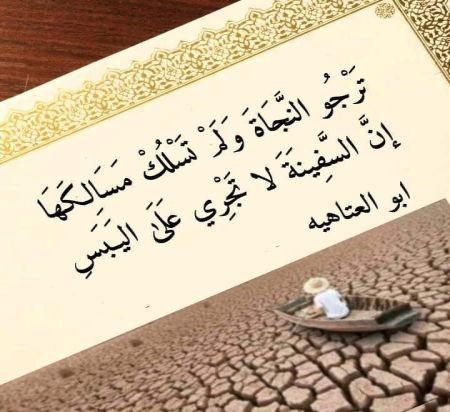 تَرْجُو النَّجَاةَ وَلَمْ تَسْلُكْ مَسَالِكَهَا
إِنَّ السَّفِينَةَ لَا تَجْرِي عَلَى اليَبَسِ
ابو العتاهيه